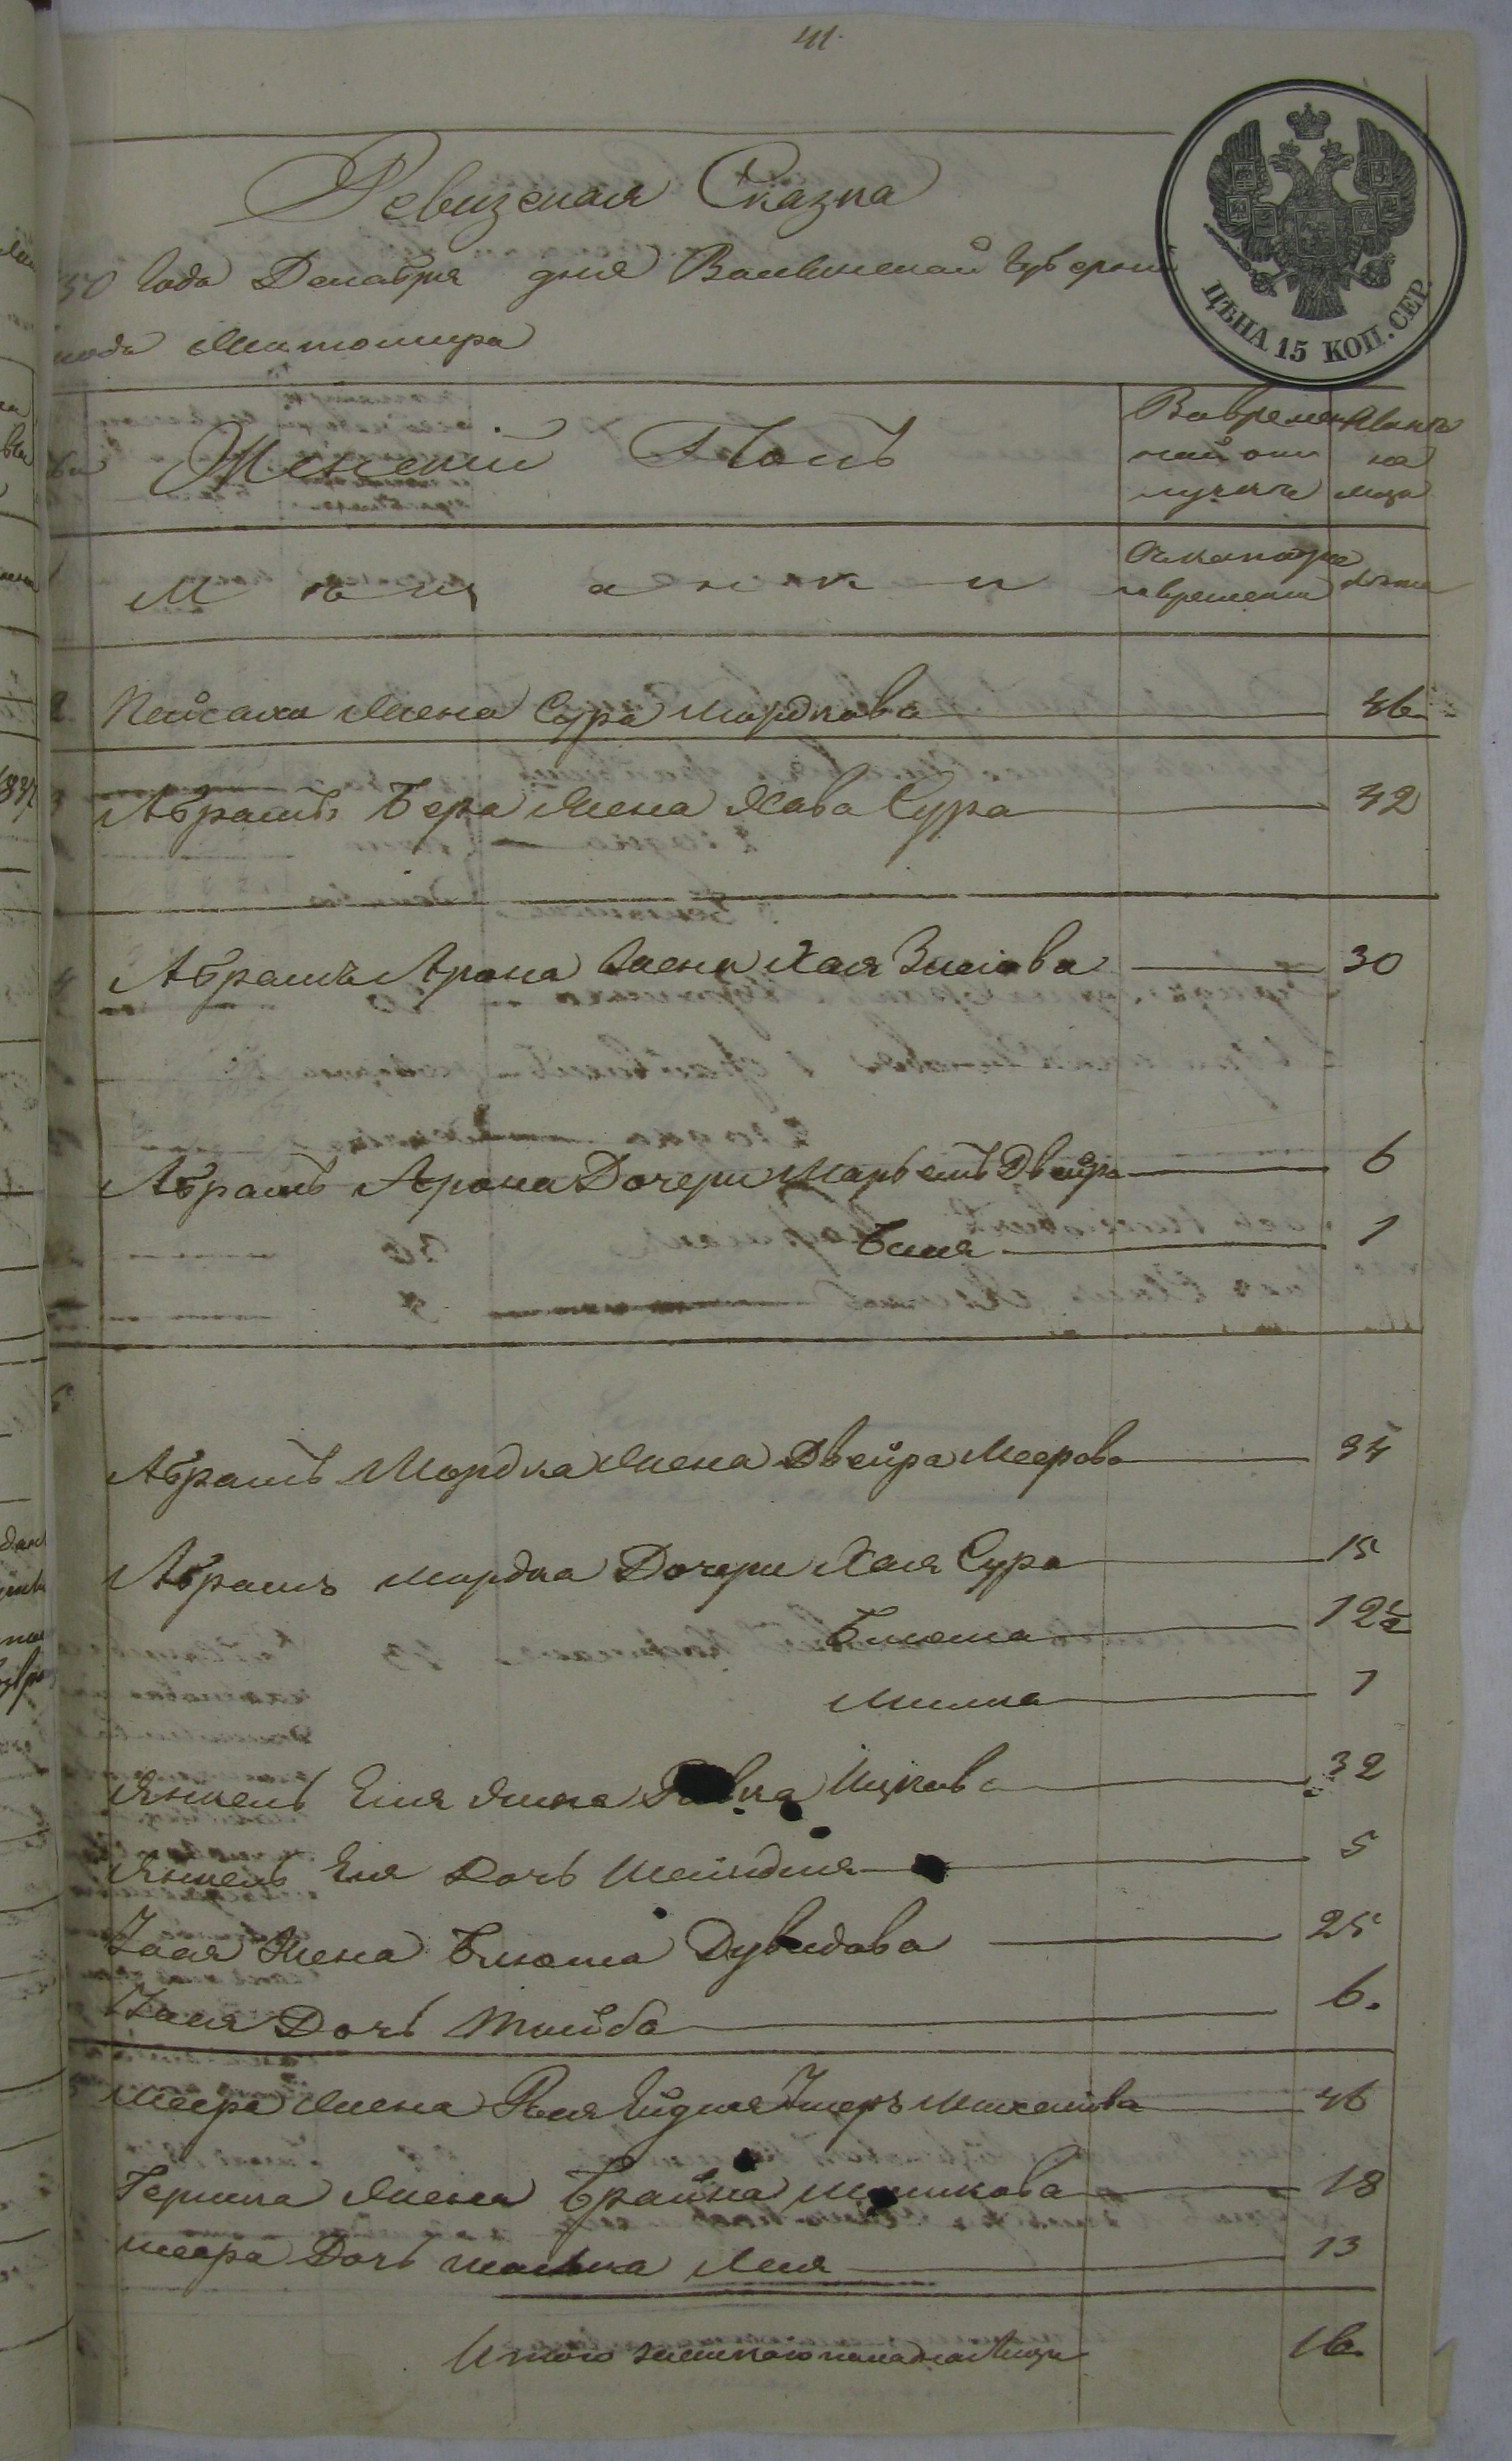 41.
Ревизская Сказка
50 года Декабря дня Волынской губерніи
рода Житомира
ЦѢНА 15 КОП. СЕР.
Женскій Полъ
Во времен
ной от
лучкѣ
Нынѣ
на
лицо
Мѣщанки
Съ котораго
времени
лѣта
Пейсаха Жена Сура Мордкова 46
Абрамъ Бера Жена Хава Сура 42
4 Абрамъ Арона Жена Хая Зислова 30
Абрамъ Арона Дочери Марьемъ Двейра 6
Бася 1
Абрамъ Мордка Жена Двейра Меерова 34
Абрамъ Мордка Дочери Хая Сура 15
Блюма 12½
Милка 7
Янкель Еля Жена Ицкова 32
Янкель Еля Дочь Шейндля 5
Жена Блюма Дувидова 25
Дочь Тайба 6.
Меера Жена Рыся 46
Гершка Жена Брайна 18
Меера Дочь Лея 13
Итого женскаго пола на лицо 16